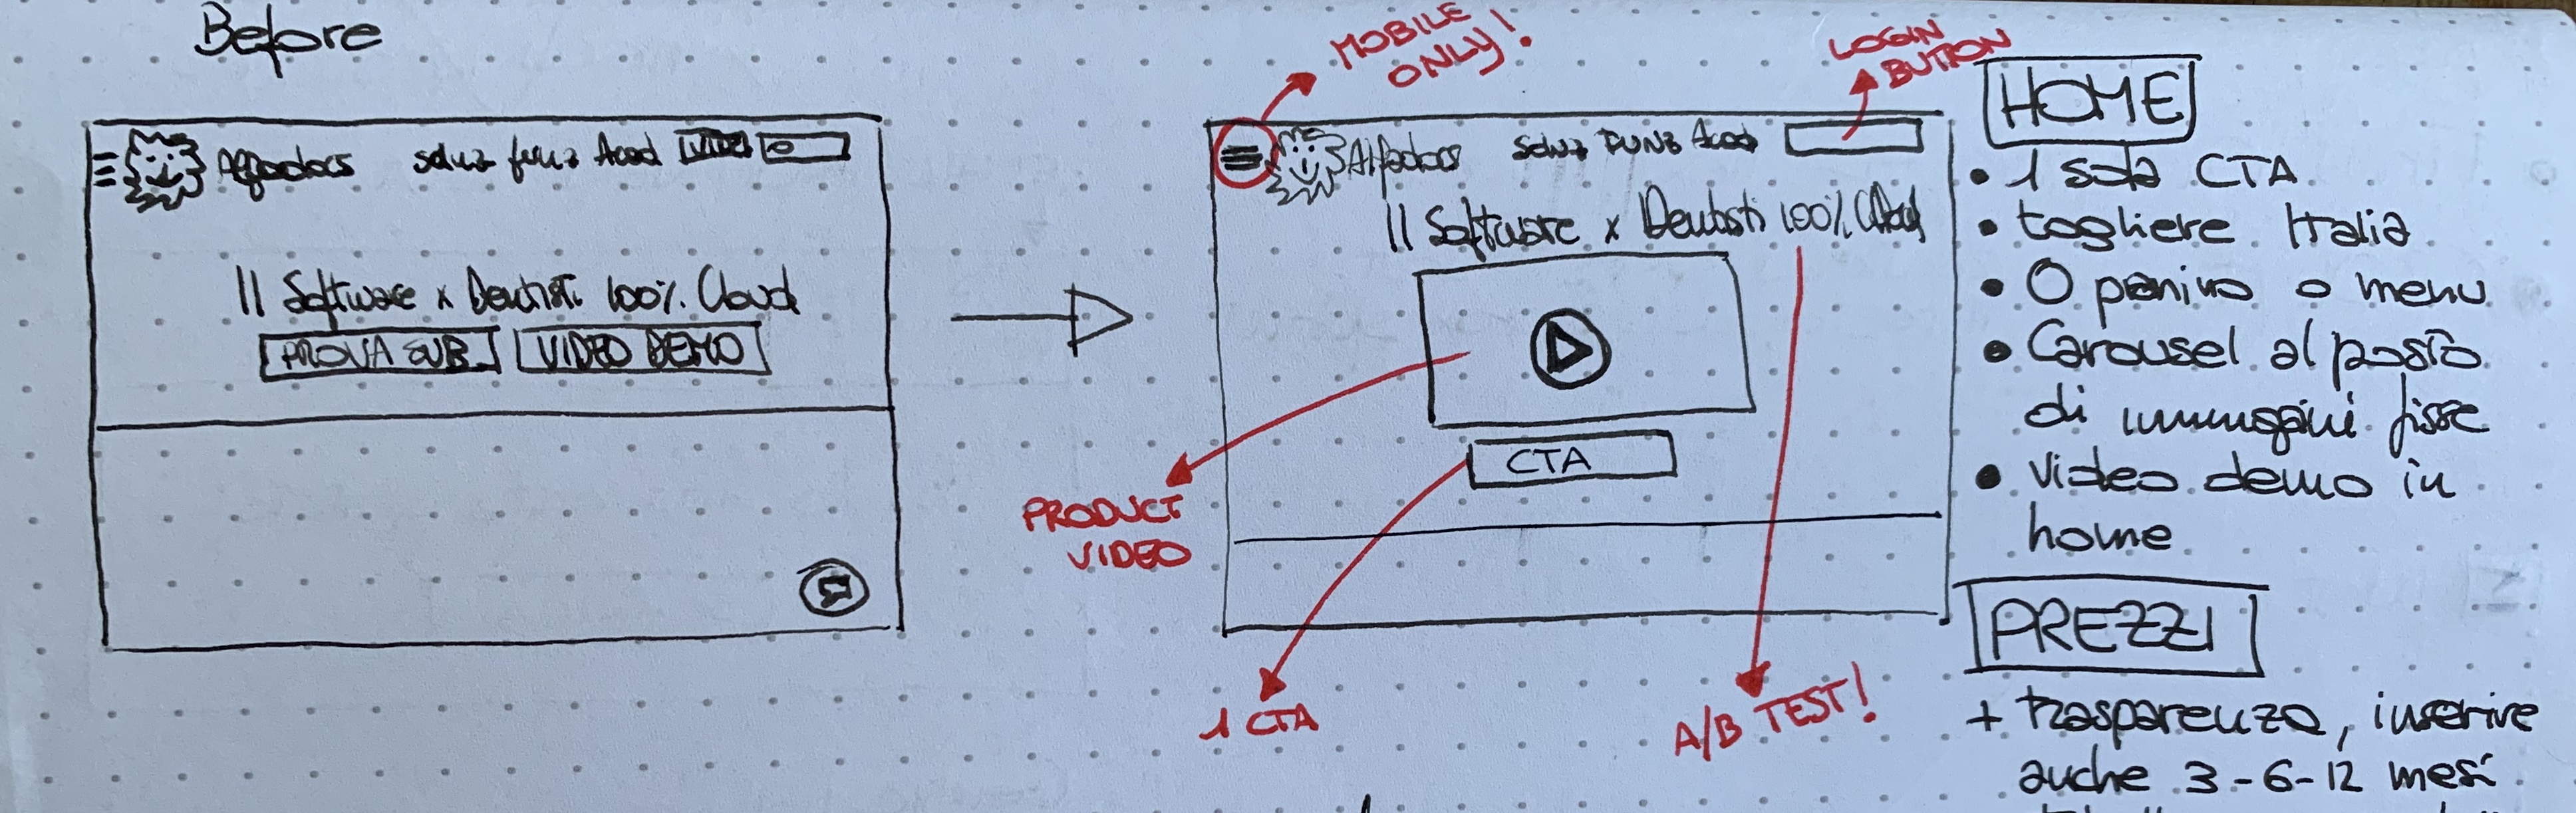 Before
Alfadocs
Acad
Il Software x Dentisti 100% Cloud
PROVA SUB
VIDEO DEMO
MOBILE
ONLY!
LOGIN
BUTTON
Alfadocs
FUNZ Acad
Il Software x Dentisti 100% Cloud
CTA
PRODUCT
VIDEO
1 CTA
A/B TEST!
HOME
• 1 sola CTA
• togliere Italia
• O panino o menu
• Carousel al posto
di immagini fisse
• Video demo in
home
PREZZI
+ trasparenza, inserire
anche 3-6-12 mesi